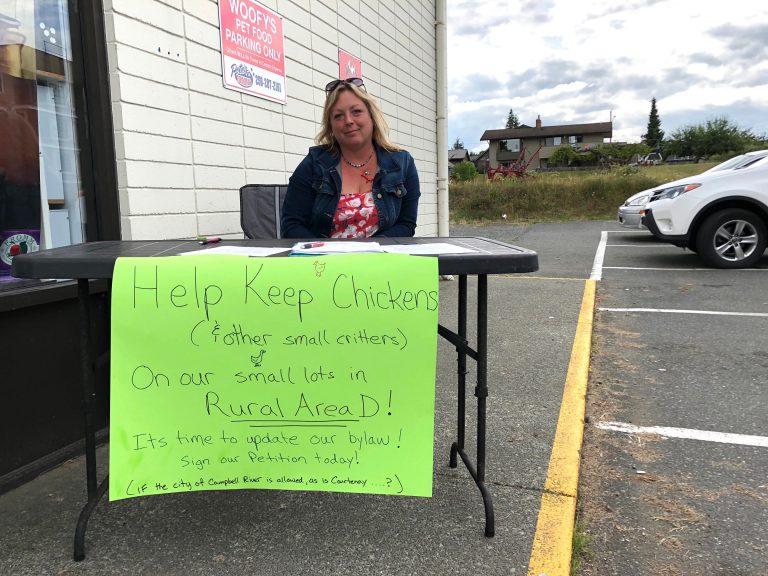 WOOFY'S
PET FOOD
PARKING ONLY
Help Keep Chickens
(& other small critters)
On our small lots in
Rural Area D!
Its time to update our bylaw!
Sign our Petition today!
(if the city of Campbell River is allowed, as is Courtenay ....?)